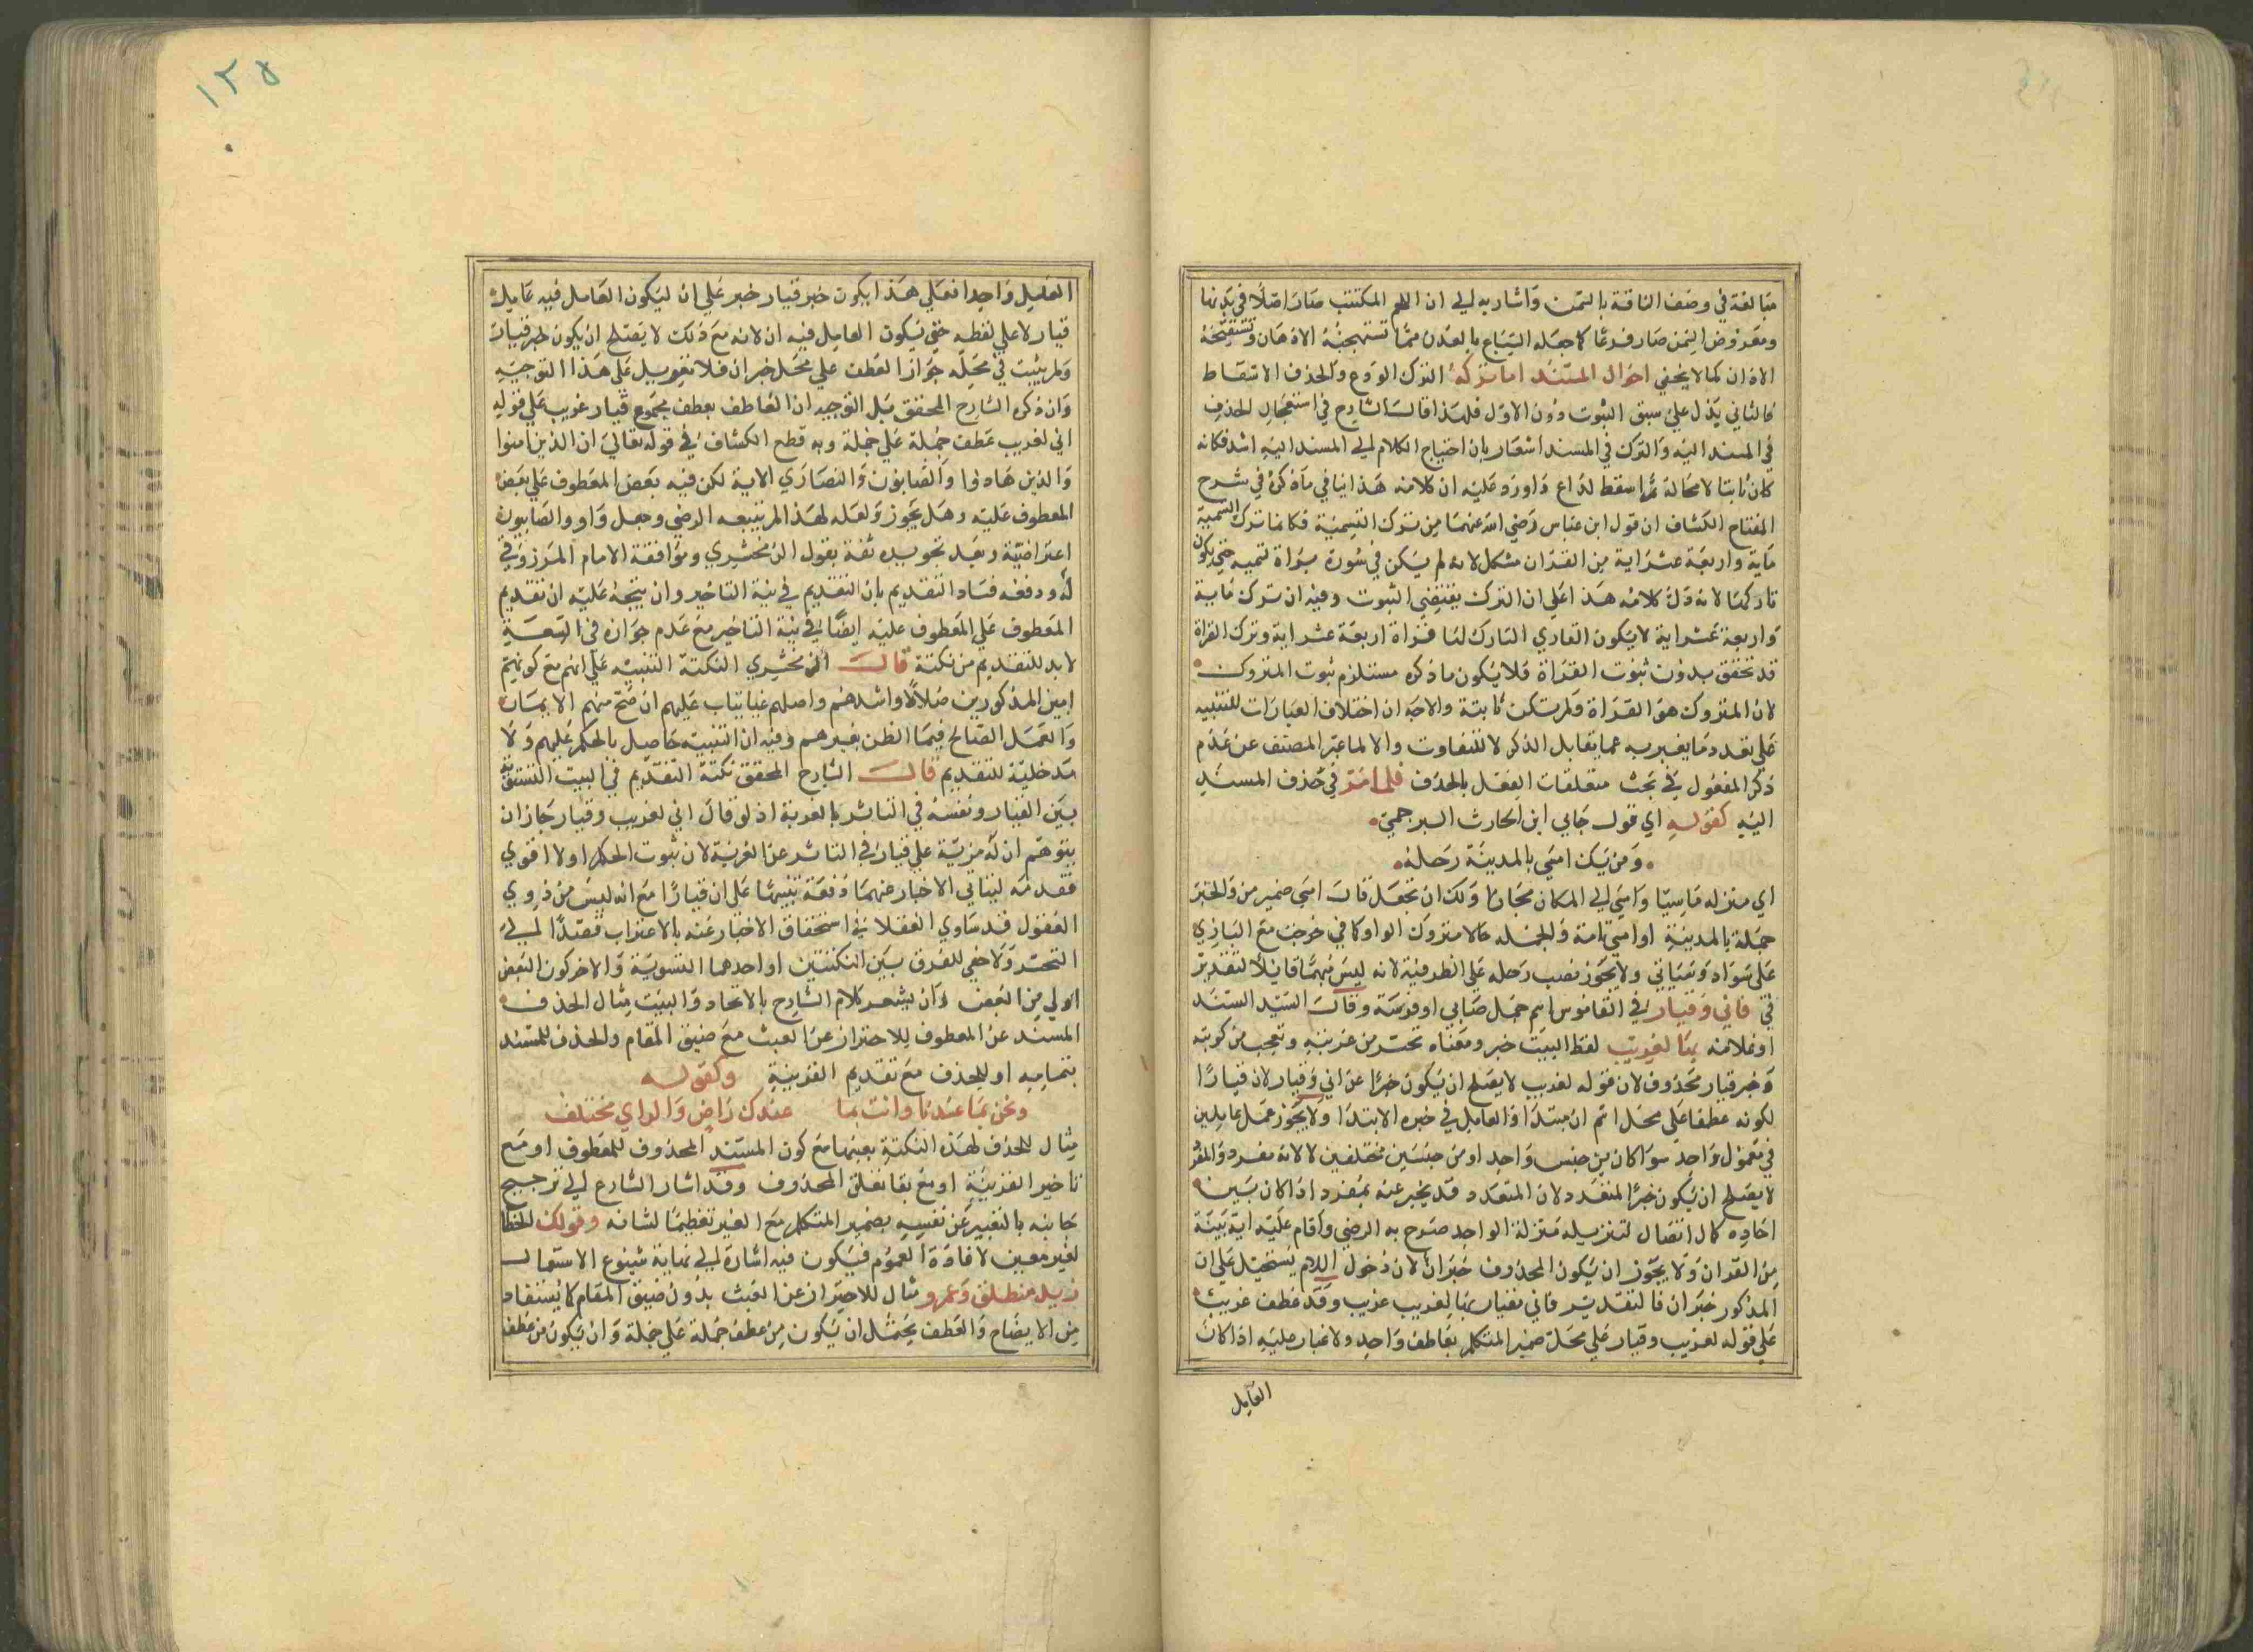 مبالغة في وصف الناقة بالسمن واشار به الي ان اللحم المكتنب صار اصلا في بدنها
ومعروض السمن صار فرعا كما جعله السباع بالعدن مما تستهجنه الاذهان وتستقبحه
الاذان كما لا يخفي احوال المسند اما تركه الترك الودع والحذف الاسقاط
فالثاني يدل علي سبق الثبوت دون الاول فلهذا قال الشارح في استعجال الحذف
في المسند اليه والترك في المسند اشعار بان احتياج الكلام الي المسند اليه اشد فكانه
كان ثابتا لا محالة ثم اسقط لداع واورد عليه ان كلامه هذا ينافي ما ذكره في شرح
المفتاح الكشاف ان قول ابن عباس رضي الله عنهما من ترك التسمية فكانما ترك التسمية
ماية واربعة عشر اية من القران مشكل لانه لم يكن في سورة براة تسمية حتي يكون
تاركها لانه دل كلامه هذا علي ان الترك يقتضي الثبوت وفيه ان ترك ماية
واربعة عشر اية لا يكون القاري التارك لها قراة اربعة عشر اية وترك القراة
قد تحقق بدون ثبوت القراة فلا يكون ما ذكره مستلزم ثبوت المتروك
لان المتروك هو القراة ولم تكن ثابتة والاجه ان اختلاف العبارات للتنبيه
علي تعدد ما يعبر به عما يقابل الذكر لا للتفاوت والا لما عبر المصنف عن عدم
ذكر المفعول في بحث متعلقات الفعل بالحذف فلما مر في حذف المسند
اليه كقوله اي قول جابي ابن الحارث البرجمي
ومن يك امسي بالمدينة رحله
اي منزله ماسيا وامسي الي المكان مجازا ولك ان تجعل قال امسي ضمير من والخبر
جملة بالمدينة او امسي تامة والجمله حالا متروك الواو كما في خرجت مع البازي
علي سواد وسياتي ولا يجوز نصب رحله علي الظرفية لانه ليس مبهما قابلا لتقدير
في فاني وقيار في القاموس اسم جمل ضابي او فرسه وقال السيد السند
او غلامه بها لغريب لفظ البيت خبر ومعناه تحسر من غربته وتعجب من كربته
وخبر قيار محذوف لان قوله لغريب لا يصلح ان يكون خبرا عن اني وقيار لان قيارا
لكونه عطفا علي محل اسم ان مبتدا والعامل في خبره الابتدا ولا يجوز عمل عاملين
في معمول واحد سوا كان من جنس واحد او من جنسين مختلفين لا لانه مفرد والمفرد
لا يصلح ان يكون خبرا لمتعدد لان المتعدد قد يخبر عنه بمفرد اذا كان بين
احاده كمال اتصال لتنزيله منزلة الواحد صرح به الرضي واقام عليه اية بينة
من القران ولا يجوز ان يكون المحذوف خبر ان لان دخول اللام يستحيل علي ان
المذكور خبر ان فالتقدير فاني وقيار بها لغريب غريب وقد عطف غريب
علي قوله لغريب وقيار علي محل ضمير المتكلم بعاطف واحد ولا غبار عليه اذا كان
العامل
١٢٥
العامل واحدا فعلي هذا يكون خبر قيار خبر علي ان ليكون العامل فيه عامل
قيار لا علي لفظه حتي يكون العامل فيه ان لانه مع ذلك لا يصلح ان يكون خبر قيار
ولم يثبت في محله جواز العطف علي محل خبر ان فلا تعويل علي هذا التوجيه
وان ذكره الشارح المحقق بل التوجيه ان العاطف بعطف مجموع قيار غريب علي قوله
اني لغريب عطف جملة علي جملة وبه قطع الكشاف في قوله تعالي ان الذين امنوا
والذين هادوا والصابون والنصاري الاية لكن فيه بعض المعطوف علي بعض
المعطوف عليه وهل يجوز ولعله لهذا لم يتبعه الرضي وجعل واو والصابيون
اعتراضية وبعد تجويده ثقة بقول الزمخشري وموافقة الامام المرزوقي
له ودفعه فساد التقديم بان التقديم في نية التاخير وان يتجه عليه ان تقديم
المعطوف علي المعطوف عليه ايضا في نية التاخير مع عدم جوازه في السعة
لا بد للتقديم من نكتة قال الزمخشري النكتة التنبيه علي انهم مع كونهم
ابين المذكورين ضلالا واشدهم واصلهم غيا يتاب عليهم ان صح منهم الايمان
والعمل الصالح فيما الظن بغيرهم وفيه ان التنبيه حاصل بالحكم عليهم ولا
مدخلية للتقديم قال الشارح المحقق نكتة التقديم في البيت التسوية
بين القيار ونفسه في التاثر بالغربة اذ لو قال اني لغريب وقيار جاز ان
يتوهم ان له مزية علي قيار في التاثر عن الغربة لان ثبوت الحكم اولا اقوي
فقدمه ليتاتي الاخبار عنهما دفعة تنبيها علي ان قيارا مع انه ليس من ذوي
العقول قد ساوي العقلا في استحقاق الاخبار عنه بالاغتراب قصدا الي
التحسر ولا خفي للفرق بين النكتتين او احدهما التسوية والاخر كون البعض
اولي من البعض وان يشعر كلام الشارح بالاتحاد والبيت مثال الحذف
المسند عن المعطوف للاحتراز عن العبث مع ضيق المقام والحذف للمسند
بتمامه او للحذف مع تقديم القرينة وكقوله
ونحن بما عندنا وانت بما عندك راض والراي مختلف
مثال للحذف لهذه النكتة بعينها مع كون المسند المحذوف للمعطوف او مع
تاخير القرينة او مع بقا تعلق المحذوف وقد اشار الشارع الي ترجيح
جانبه بالتعبير عن نفسه بضمير المتكلم مع الغير تعظيما لشانه وقولك الخطا
لغير معين لافادة العموم فيكون فيه اشارة الي نهاية شيوع الاستعمال
زيد منطلق وعمرو مثال للاحتراز عن العبث بدون ضيق المقام كما يستفاد
من الايضاح والعطف يحتمل ان يكون من عطف جملة علي جملة وان يكون من عطف